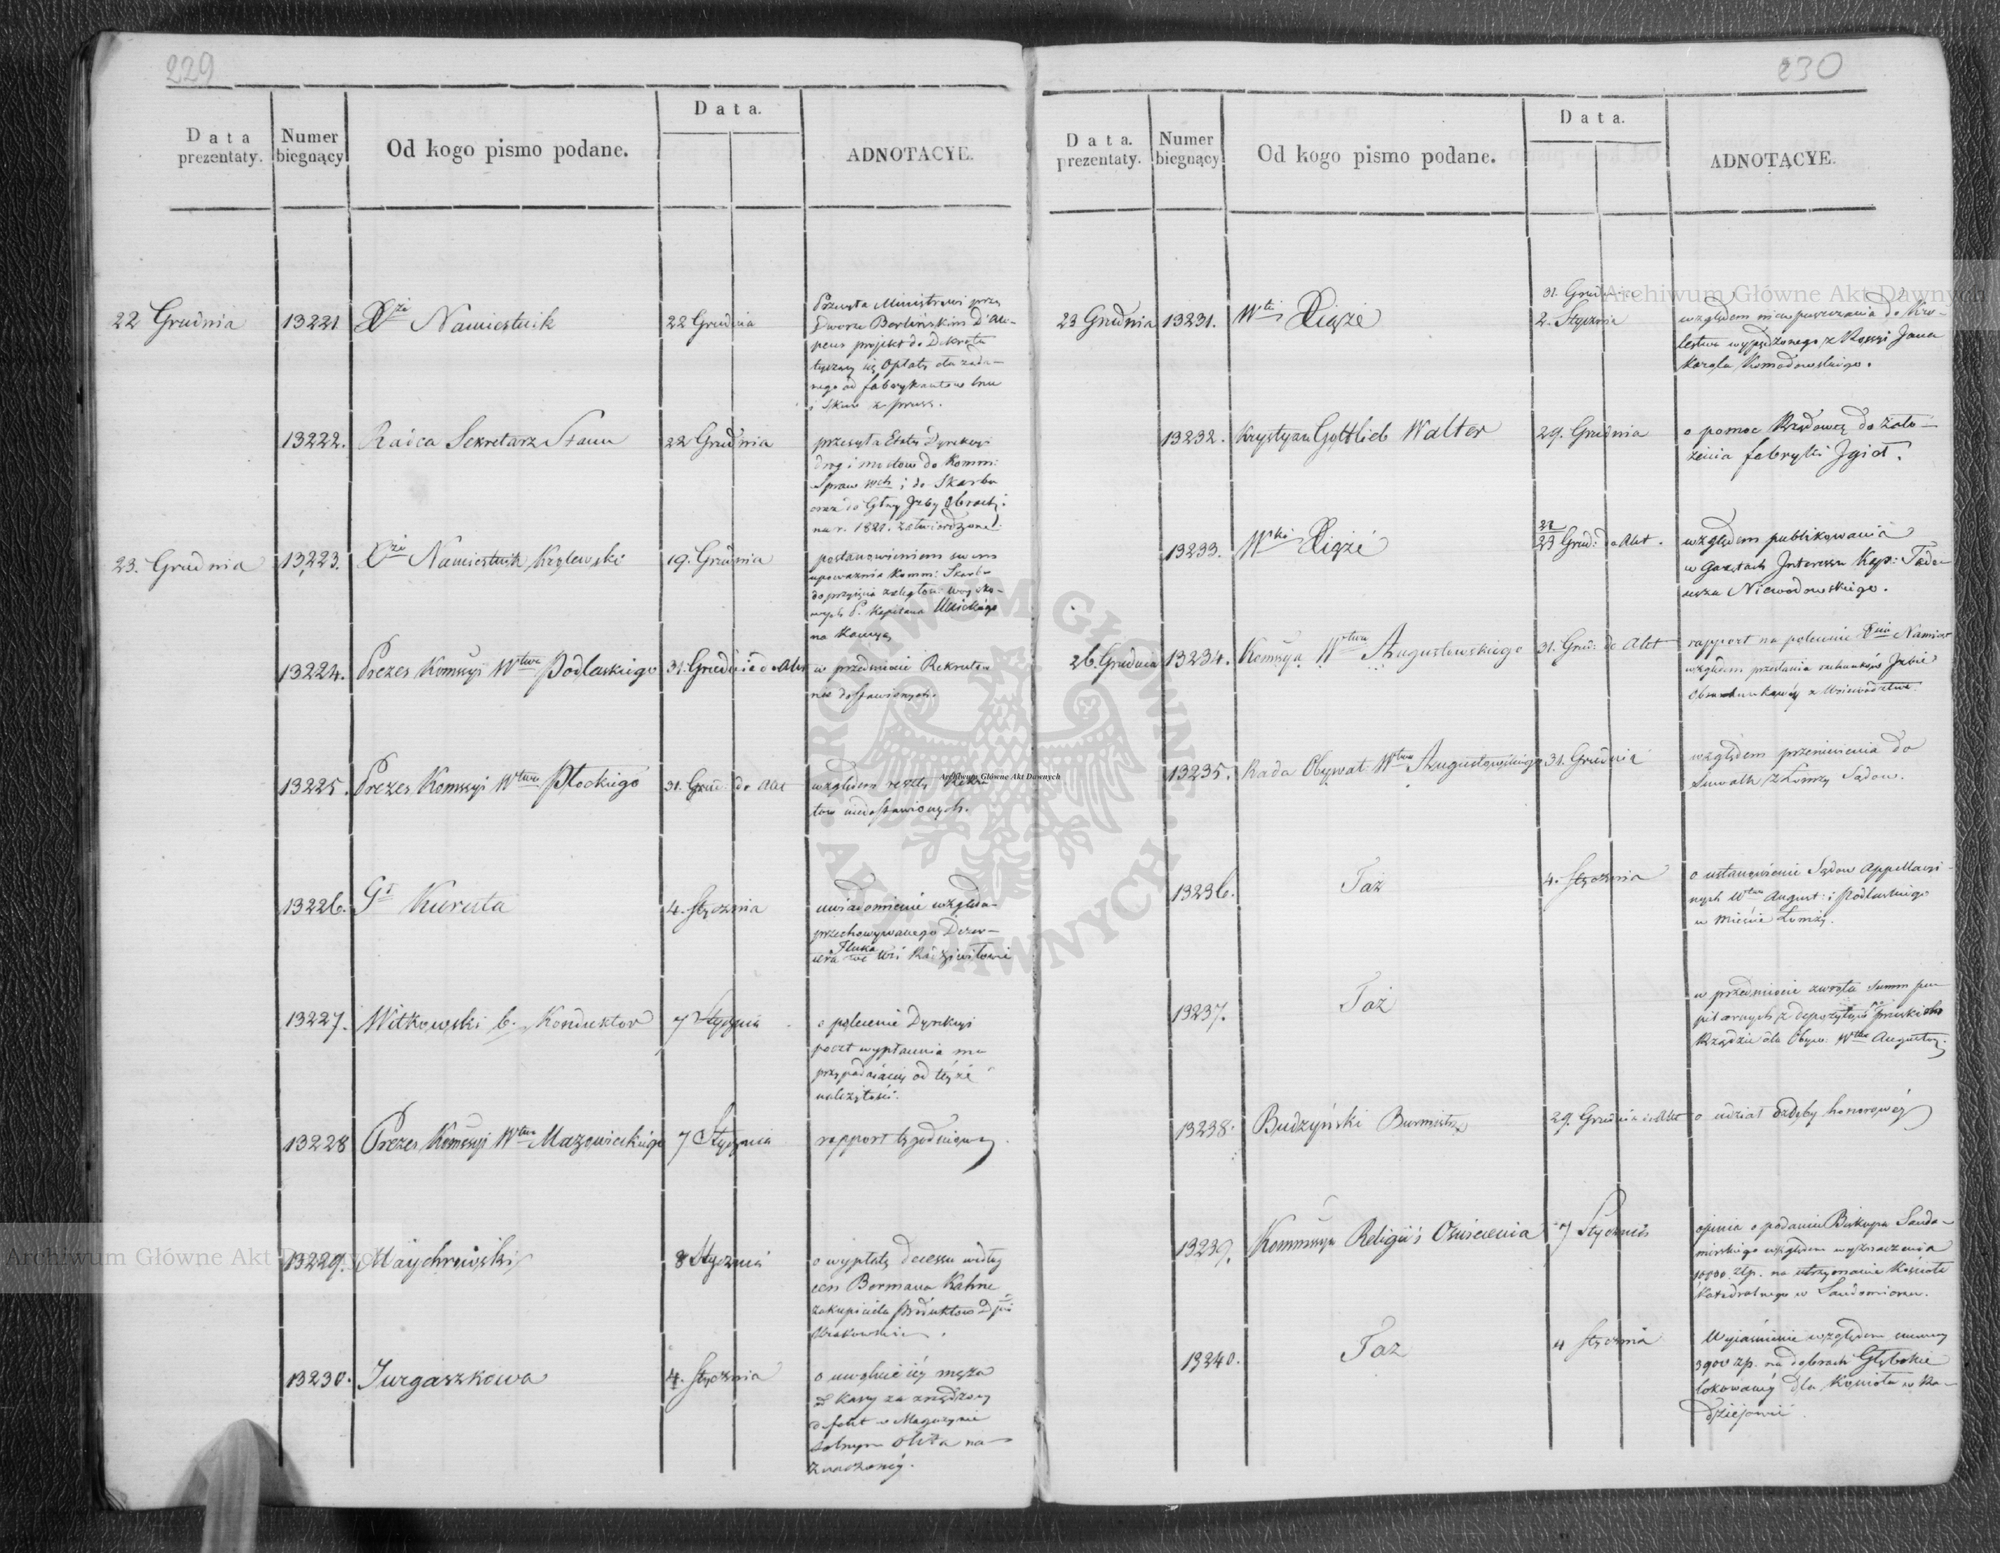 229
Data prezentaty.
Numer biegnący
Od kogo pismo podane.
Data.
ADNOTACYE.
22 Grudnia
13221
Xże Namiestnik
22 Grudnia
Przesyła Ministrowi przy
Dworze Berlińskim D'Alo-
peus projekt do Dekretu
od fabrykantów lnu
13222.
Radca Sekretarz Stanu
22 Grudnia
przesyła Etaty Dyrekcyi
dróg i mostów do Komm:
Spraw Wch i do Skarbu
oraz do Głney Izby Obrach:
na r. zatwierdzone.
23. Grudnia
13223.
Xże Namiestnik Królewski
19. Grudnia
postanowieniem swem
upoważnia Komm: Skarbu
P. Kapitana
na Kaucyą
13224.
Prezes Kommsyi Wtwa Podlaskiego
31. Grudnia do Akt
w przedmiocie Rekrutów
nie dostawionych.
13225.
Prezes Kommsyi Wtwa Płockiego
31. Grud: do Akt
względem reszty Rekru
tów niedostawionych.
13226.
Gł Kuruta
4. Stycznia
uwiadomienie względem
przechowywanego Dezer-
tera we wsi Radziwiłowie
13227.
Witkowski b. Konduktor
7 Stycznia
o polecenie Dyrekcyi
poczt wypłacenia mu
przypadaiącey od teyże
należytości.
13228
Prezes Kommsyi Wtwa Mazowieckiego
7 Stycznia
rapport tygodniowy
13229.
Maychrowski
8 Stycznia
o wypłatę
Bormana Kahne
produktów
Krakowskie
13230.
Jurgaszkowa
4. Stycznia
o męża
z kary za
defekt w Magazynie
Solnym
znaczoney.
230
Data. prezentaty.
Numer biegnący
Od kogo pismo podane.
Data.
ADNOTACYE.
23 Grudnia
13231.
Wki Xiąże
31. Grudnia
2. Stycznia
względem niewpuszczania do Kró-
lestwa wypędzonego z Rossyi Jana
Karola Komodowskiego.
13232.
Krystyan Gottlieb Walter
29. Grudnia
o pomoc Rządową do zało-
żenia fabryki Igieł.
13233.
Wki Xiąże
23 Grud: do Akt.
względem publikowania
w Gazetach Interessu Kap: Tade-
usza Niewodowskiego.
26. Grudnia
13234.
Kommsya Wtwa Augustowskiego
31. Gru: do Akt
rapport na polecenie Xcia Namiest
względem przesłania rachunków Izbie
Obrachunkowey z Woiewództwa.
13235.
Rada Obywat: Wtwa Augustowskiego
31. Grudnia
względem przeniesienia do
Suwałk z Łomży Sądow.
13236.
Taż
4. Stycznia
o ustanowienie Sądow Appellacyi-
nych Wtwa August: i Podlaskiego
w mieście Łomży.
13237.
Taż
w przedmiocie zwrotu Summ pu-
pilarnych z depozytów pruskich
Rządzie dla Obyw: Wtwa Augustow:
13238.
Budzyński Burmistrz
29. Grudnia do Akt
o udział ozdoby honorowey
13239.
Kommssya Religii i Oświecenia
7 Stycznia
opinia o podaniu Biskupa Sando-
mirskiego względem wyznaczenia
10000. złp. na utrzymanie Kościoła
Katedralnego w Sandomierzu.
13240.
Taż
4 Stycznia
Wyjaśnienie względem summy
3900 zp. na dobrach Głębokie
lokowaney dla Kościoła w Ra-
dziejowie.
Archiwum Główne Akt Dawnych
Archiwum Główne Akt Dawnych
Archiwum Główne Akt Dawnych
ARCHIWUM GŁÓWNE AKT DAWNYCH